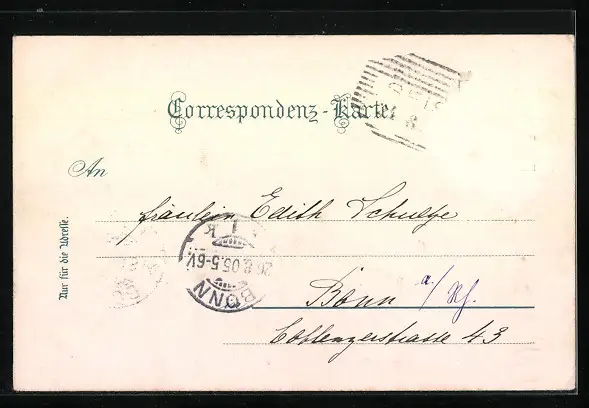 Correspondenz-Karte
An
Fräulein Edith Schultze
Nur für die Adresse.
26.8.05.5-6V.
BONN
Bonn a/Rh.
Coblenzerstrasse 43